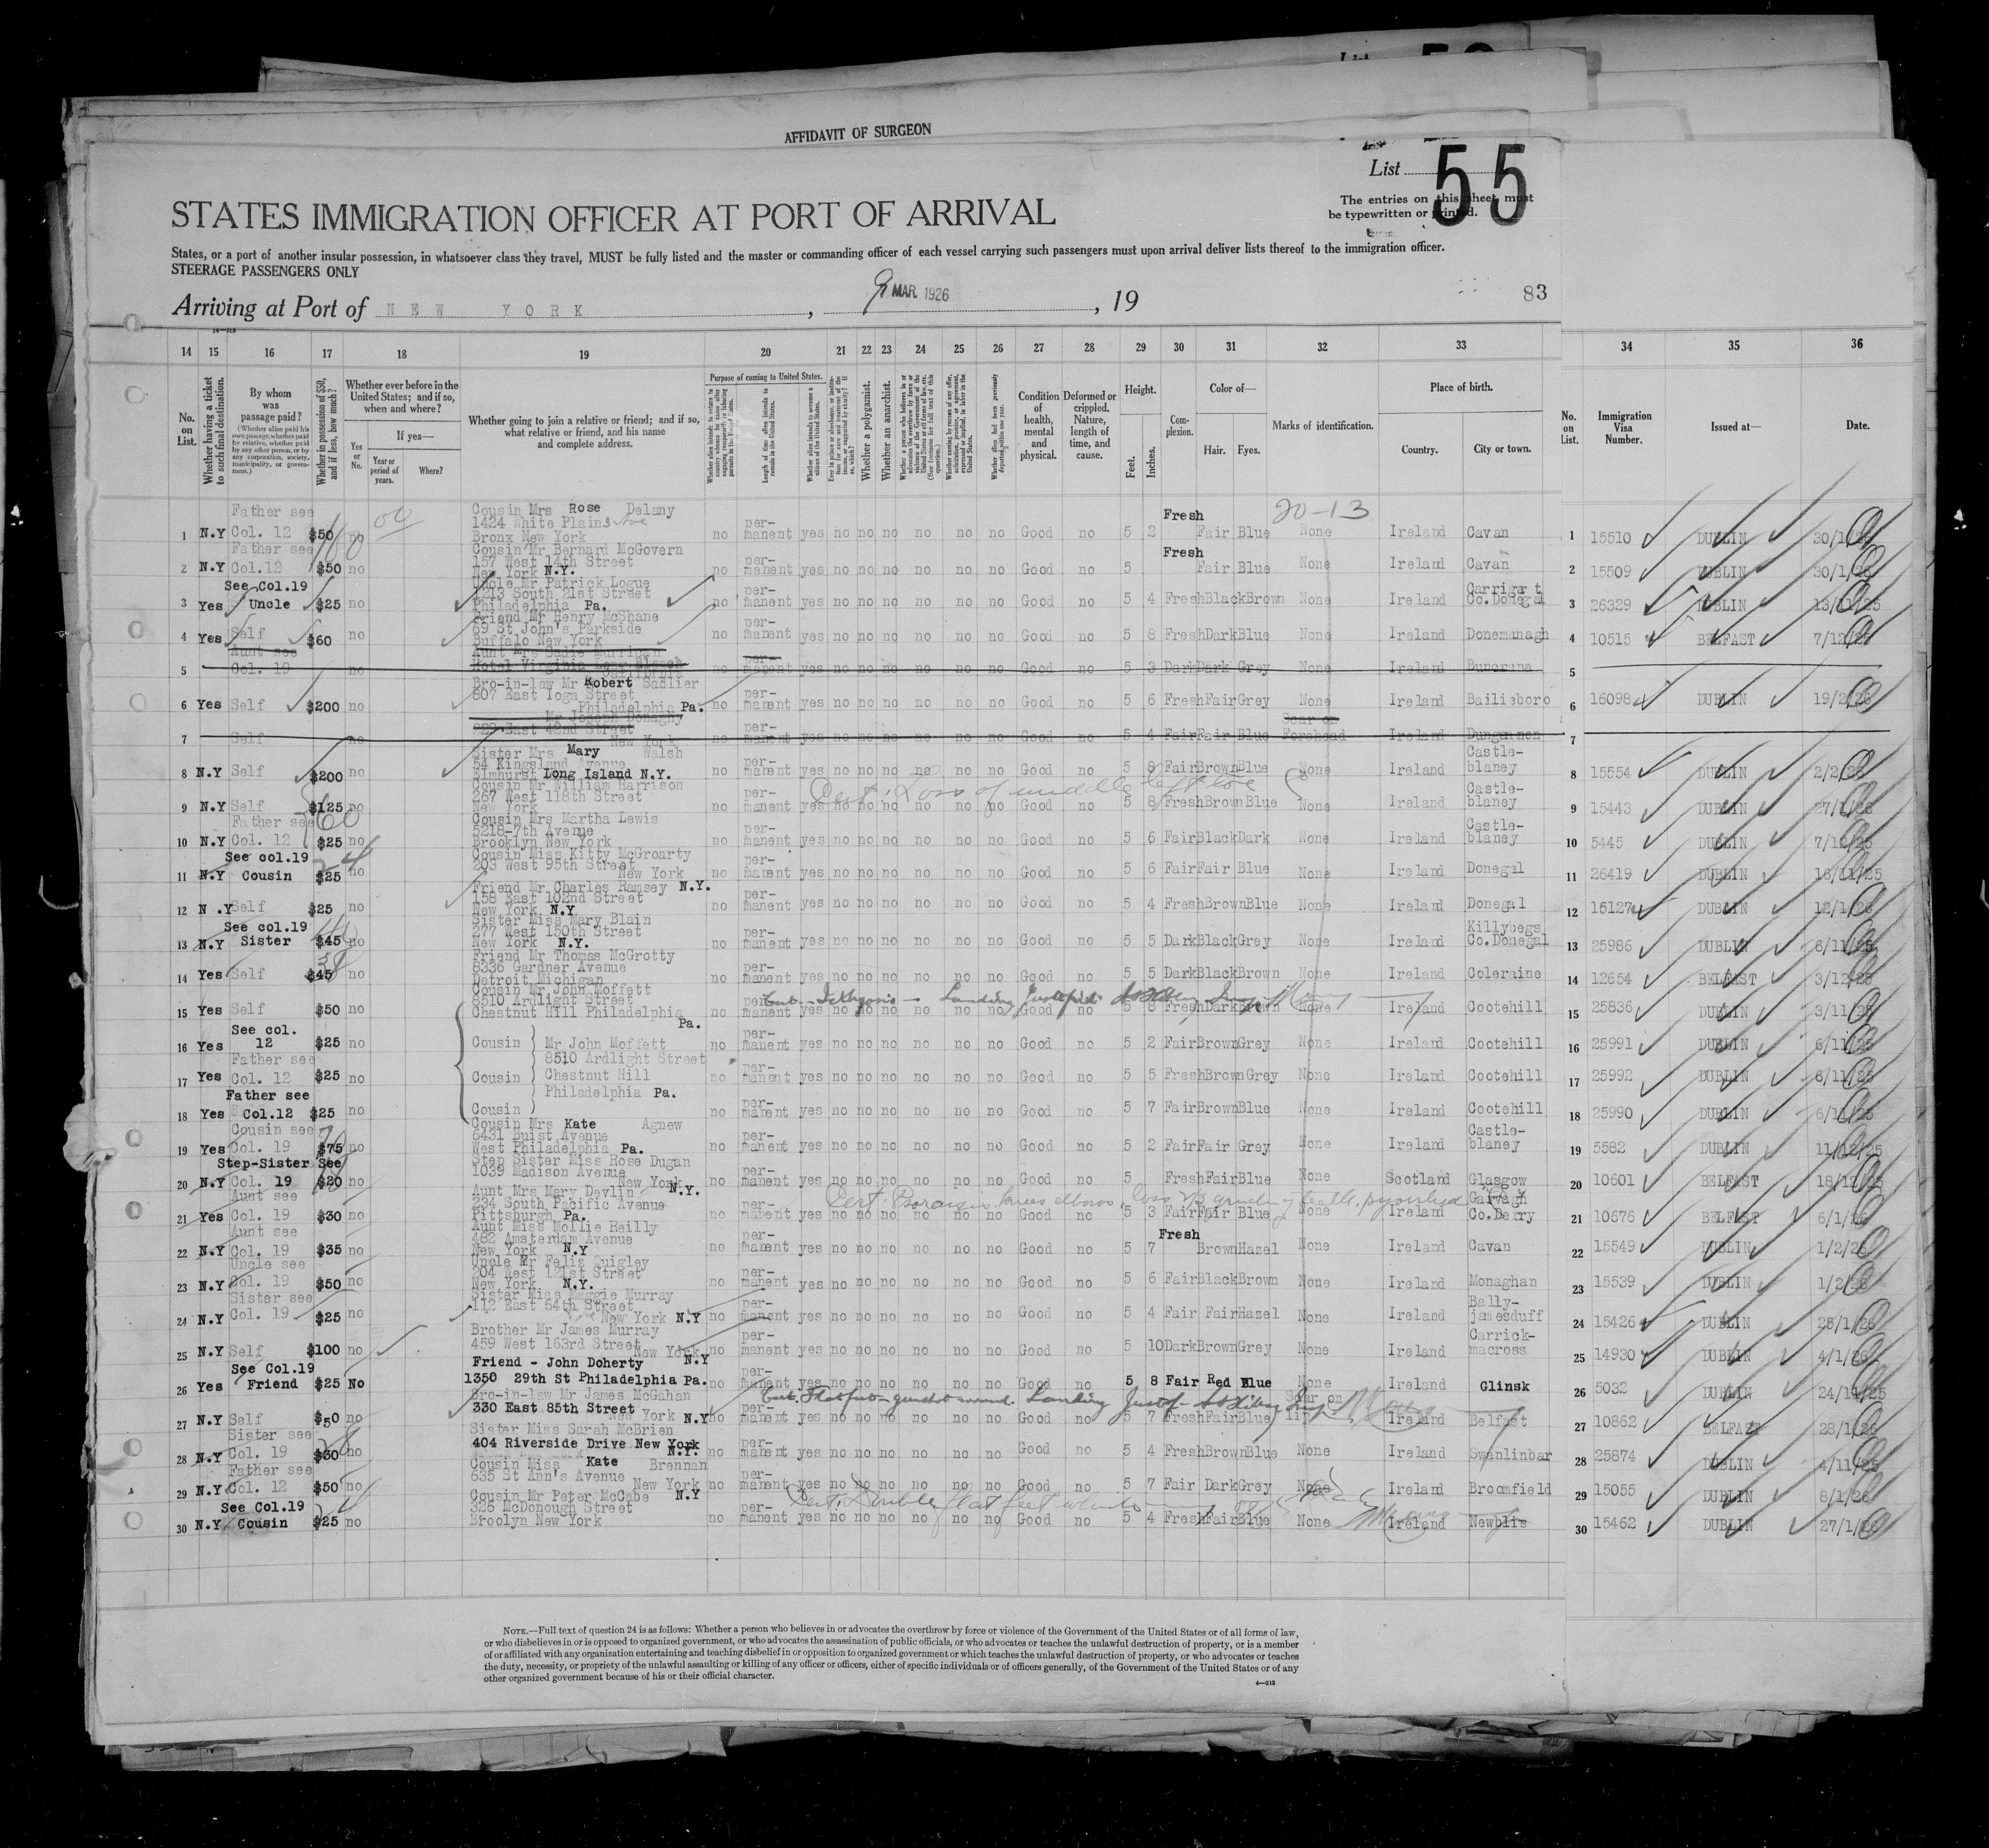 AFFIDAVIT OF SURGEON
List 55
The entries on this sheet must
be typewritten or printed.
STATES IMMIGRATION OFFICER AT PORT OF ARRIVAL
States, or a port of another insular possession, in whatsoever class they travel, MUST be fully listed and the master or commanding officer of each vessel carrying such passengers must upon arrival deliver lists thereof to the immigration officer.
STEERAGE PASSENGERS ONLY
Arriving at Port of NEW YORK , 9 MAR 1926 , 19
83
14 15 16 17 18 19 20 21 22 23 24 25 26 27 28 29 30 31 32 33 34 35 36
No. on List.
Whether having a ticket to such final destination.
By whom was passage paid?
(Whether alien paid his own passage, whether paid by relative, whether paid by any other person, or by any corporation, society, municipality, or government.)
Whether in possession of $50, and if less, how much?
Whether ever before in the United States; and if so, when and where?
Yes or No.
If yes—
Year or period of years.
Where?
Whether going to join a relative or friend; and if so, what relative or friend, and his name and complete address.
Purpose of coming to United States.
Whether a polygamist.
Whether an anarchist.
Condition of health, mental and physical.
Deformed or crippled. Nature, length of time, and cause.
Height.
Feet.
Inches.
Complexion.
Color of—
Hair. Eyes.
Marks of identification.
Place of birth.
Country. City or town.
No. on List.
Immigration Visa Number.
Issued at—
Date.
20-13
1 N.Y Father see Col. 12 $50 no Cousin Mrs Rose Delany 1424 White Plains Ave Bronx New York no permanent yes no no no no no Good no 5 2 Fresh Fair Blue None Ireland Cavan 1 15510 DUBLIN 30/1/26
2 N.Y Father see Col.12 $50 no Cousin Mr Bernard McGovern 157 West 14th Street New York N.Y. no permanent yes no no no no no no Good no 5 Fresh Fair Blue None Ireland Cavan 2 15509 DUBLIN 30/1/26
3 Yes See Col.19 Uncle $25 no Uncle Mr Patrick Logue 1213 South 21st Street Philadelphia Pa. no permanent yes no no no no no no Good no 5 4 Fresh Black Brown None Ireland Carrigart Co.Donegal 3 26329 DUBLIN 13/11/25
4 Yes Self $60 no Friend Mr Henry McShane 69 St John's Parkside Buffalo New York no permanent yes no no no no no no Good no 5 8 Fresh Dark Blue None Ireland Donemanagh 4 10515 BELFAST 7/12/25
5 Aunt see Col. 19 no Aunt Mrs Sadie Hotel Virginia Long Beach California no permanent yes no no no no no no Good no 5 3 Dark Dark Grey None Ireland Buncrana 5
6 Yes Self $200 no Bro-in-law Mr Robert Sadlier 807 East Yoga Street Philadelphia Pa. no permanent yes no no no no no no Good no 5 6 Fresh Fair Grey None Ireland Bailieboro 6 16098 DUBLIN 19/2/26
7 Self no Mr Joseph Donaghy 829 East 42nd Street New York no permanent yes no no no no no no Good no 5 4 Fair Fair Blue Scar on Forehead Ireland Dungannon 7
8 N.Y Self $200 no Sister Mrs Mary Walsh 54 Kingsland Avenue Elmhurst Long Island N.Y. no permanent yes no no no no no no Good no 5 8 Fair Brown Blue None Ireland Castleblaney 8 15554 DUBLIN 2/2/26
Cert: Loss of middle left toe
9 N.Y Self $125 no Cousin Mr William Harrison 267 West 118th Street New York no permanent yes no no no no no no Good no 5 8 Fresh Brown Blue None Ireland Castleblaney 9 15443 DUBLIN 27/1/26
10 N.Y Father see Col. 12 $25 no Cousin Mrs Martha Lewis 5218-7th Avenue Brooklyn New York no permanent yes no no no no no no Good no 5 6 Fair Black Dark None Ireland Castleblaney 10 5445 DUBLIN 7/12/25
11 N.Y See col.19 Cousin $25 no Cousin Miss Kitty McGroarty 203 West 95th Street New York no permanent yes no no no no no no Good no 5 6 Fair Fair Blue None Ireland Donegal 11 26419 DUBLIN 16/11/25
12 N.Y Self $25 no Friend Mr Charles Ramsey N.Y. 158 East 102nd Street New York N.Y no permanent yes no no no no no no Good no 5 4 Fresh Brown Blue None Ireland Donegal 12 15127 DUBLIN 12/1/26
13 N.Y See col.19 Sister $45 no Sister Miss Mary Blain 277 West 150th Street New York N.Y. no permanent yes no no no no no no Good no 5 5 Dark Black Grey None Ireland Killybegs Co.Donegal 13 25986 DUBLIN 6/11/25
14 Yes Self $45 no Friend Mr Thomas McGrotty 8336 Gardner Avenue Detroit Michigan no permanent yes no no no no no no Good no 5 5 Dark Black Brown None Ireland Coleraine 14 12654 BELFAST 3/12/25
Cert - Icthyosis - Landing Justified
15 Yes Self $50 no Cousin Mr John Moffett 8510 Ardlight Street Chestnut Hill Philadelphia Pa. no permanent yes no no no no no no Good no 5 8 Fresh Dark Brown None Ireland Cootehill 15 25836 DUBLIN 3/11/25
16 Yes See col. 12 $25 no Cousin Mr John Moffett 8510 Ardlight Street no permanent yes no no no no no no Good no 5 2 Fair Brown Grey None Ireland Cootehill 16 25991 DUBLIN 6/11/25
17 Yes Father see Col. 12 $25 no Cousin Chestnut Hill Philadelphia Pa. no permanent yes no no no no no no Good no 5 5 Fresh Brown Grey None Ireland Cootehill 17 25992 DUBLIN 6/11/25
18 Yes Father see Col.12 $25 no Cousin no permanent yes no no no no no no Good no 5 7 Fair Brown Blue None Ireland Cootehill 18 25990 DUBLIN 6/11/25
19 Yes Cousin see Col. 19 $75 no Cousin Mrs Kate Agnew 6431 Buist Avenue West Philadelphia Pa. no permanent yes no no no no no no Good no 5 2 Fair Fair Grey None Ireland Castleblaney 19 5582 DUBLIN 11/12/25
20 N.Y Step-Sister See Col. 19 $20 no Step Sister Miss Rose Dugan 1039 Madison Avenue New York N.Y. no permanent yes no no no no no no Good no 5 Fresh Fair Blue None Scotland Glasgow 20 10601 BELFAST 18/12/25
Cert Psoriasis knees elbows, loss
21 Yes Aunt see Col. 19 $30 no Aunt Mrs Mary Devlin 234 South Pacific Avenue Pittsburgh Pa. no permanent yes no no no no no no Good no 5 3 Fair Fair Blue None Ireland Garvagh Co.Derry 21 10676 BELFAST 6/1/26
22 N.Y Aunt see Col. 19 $35 no Aunt Miss Mollie Reilly 482 Amsterdam Avenue New York N.Y no permanent yes no no no no no no Good no 5 7 Fresh Brown Hazel None Ireland Cavan 22 15549 DUBLIN 1/2/26
23 N.Y Uncle see Col. 19 $50 no Uncle Mr Feliz Quigley 204 West 121st Street New York N.Y. permanent yes no no no no no no Good no 5 6 Fair Black Brown None Ireland Monaghan 23 15539 DUBLIN 1/2/26
24 N.Y Sister see Col. 19 $25 no Sister Miss Maggie Murray 112 East 64th Street New York N.Y no permanent yes no no no no no no Good no 5 4 Fair Fair Hazel None Ireland Ballyjamesduff 24 15426 DUBLIN 25/1/26
25 N.Y Self $100 no Brother Mr James Murray 459 West 163rd Street New York N.Y no permanent yes no no no no no no Good no 5 10 Dark Brown Grey None Ireland Carrickmacross 25 14930 DUBLIN 4/1/26
26 Yes See Col.19 Friend $25 No Friend - John Doherty 1350 29th St Philadelphia Pa. no permanent yes no no no no no no Good no 5 8 Fair Red Blue None Ireland Glinsk 26 5032 DUBLIN 24/11/25
Cert. Flat feet - gunshot wound. Landing Justif
27 N.Y Self $50 no Bro-in-law Mr James McGahan 330 East 85th Street New York N.Y no permanent yes no no no no no no Good no 5 7 Fresh Fair Blue Scar on lip Ireland Belfast 27 10862 BELFAST 28/1/26
28 N.Y Sister see Col. 19 $30 no Sister Miss Sarah McBrien 404 Riverside Drive New York N.Y. no permanent yes no no no no no no Good no 5 4 Fresh Brown Blue None Ireland Swanlinbar 28 25874 DUBLIN 4/11/25
29 N.Y Father see Col. 12 $50 no Cousin Miss Kate Brennan 635 St Ann's Avenue New York N.Y no permanent yes no no no no no no Good no 5 7 Fair Dark Grey None Ireland Broomfield 29 15055 DUBLIN 8/1/26
Cert. Double flat feet
30 N.Y See Col.19 Cousin $25 no Cousin Mr Peter McCabe 326 McDonough Street Broolyn New York no permanent yes no no no no no no Good no 5 4 Fresh Fair Blue None Ireland Newblis 30 15462 DUBLIN 27/1/26
NOTE.—Full text of question 24 is as follows: Whether a person who believes in or advocates the overthrow by force or violence of the Government of the United States or of all forms of law,
or who disbelieves in or is opposed to organized government, or who advocates the assassination of public officials, or who advocates or teaches the unlawful destruction of property, or is a member
of or affiliated with any organization entertaining and teaching disbelief in or opposition to organized government or which teaches the unlawful destruction of property, or who advocates or teaches
the duty, necessity, or propriety of the unlawful assaulting or killing of any officer or officers, either of specific individuals or of officers generally, of the Government of the United States or of any
other organized government because of his or their official character.
4—213